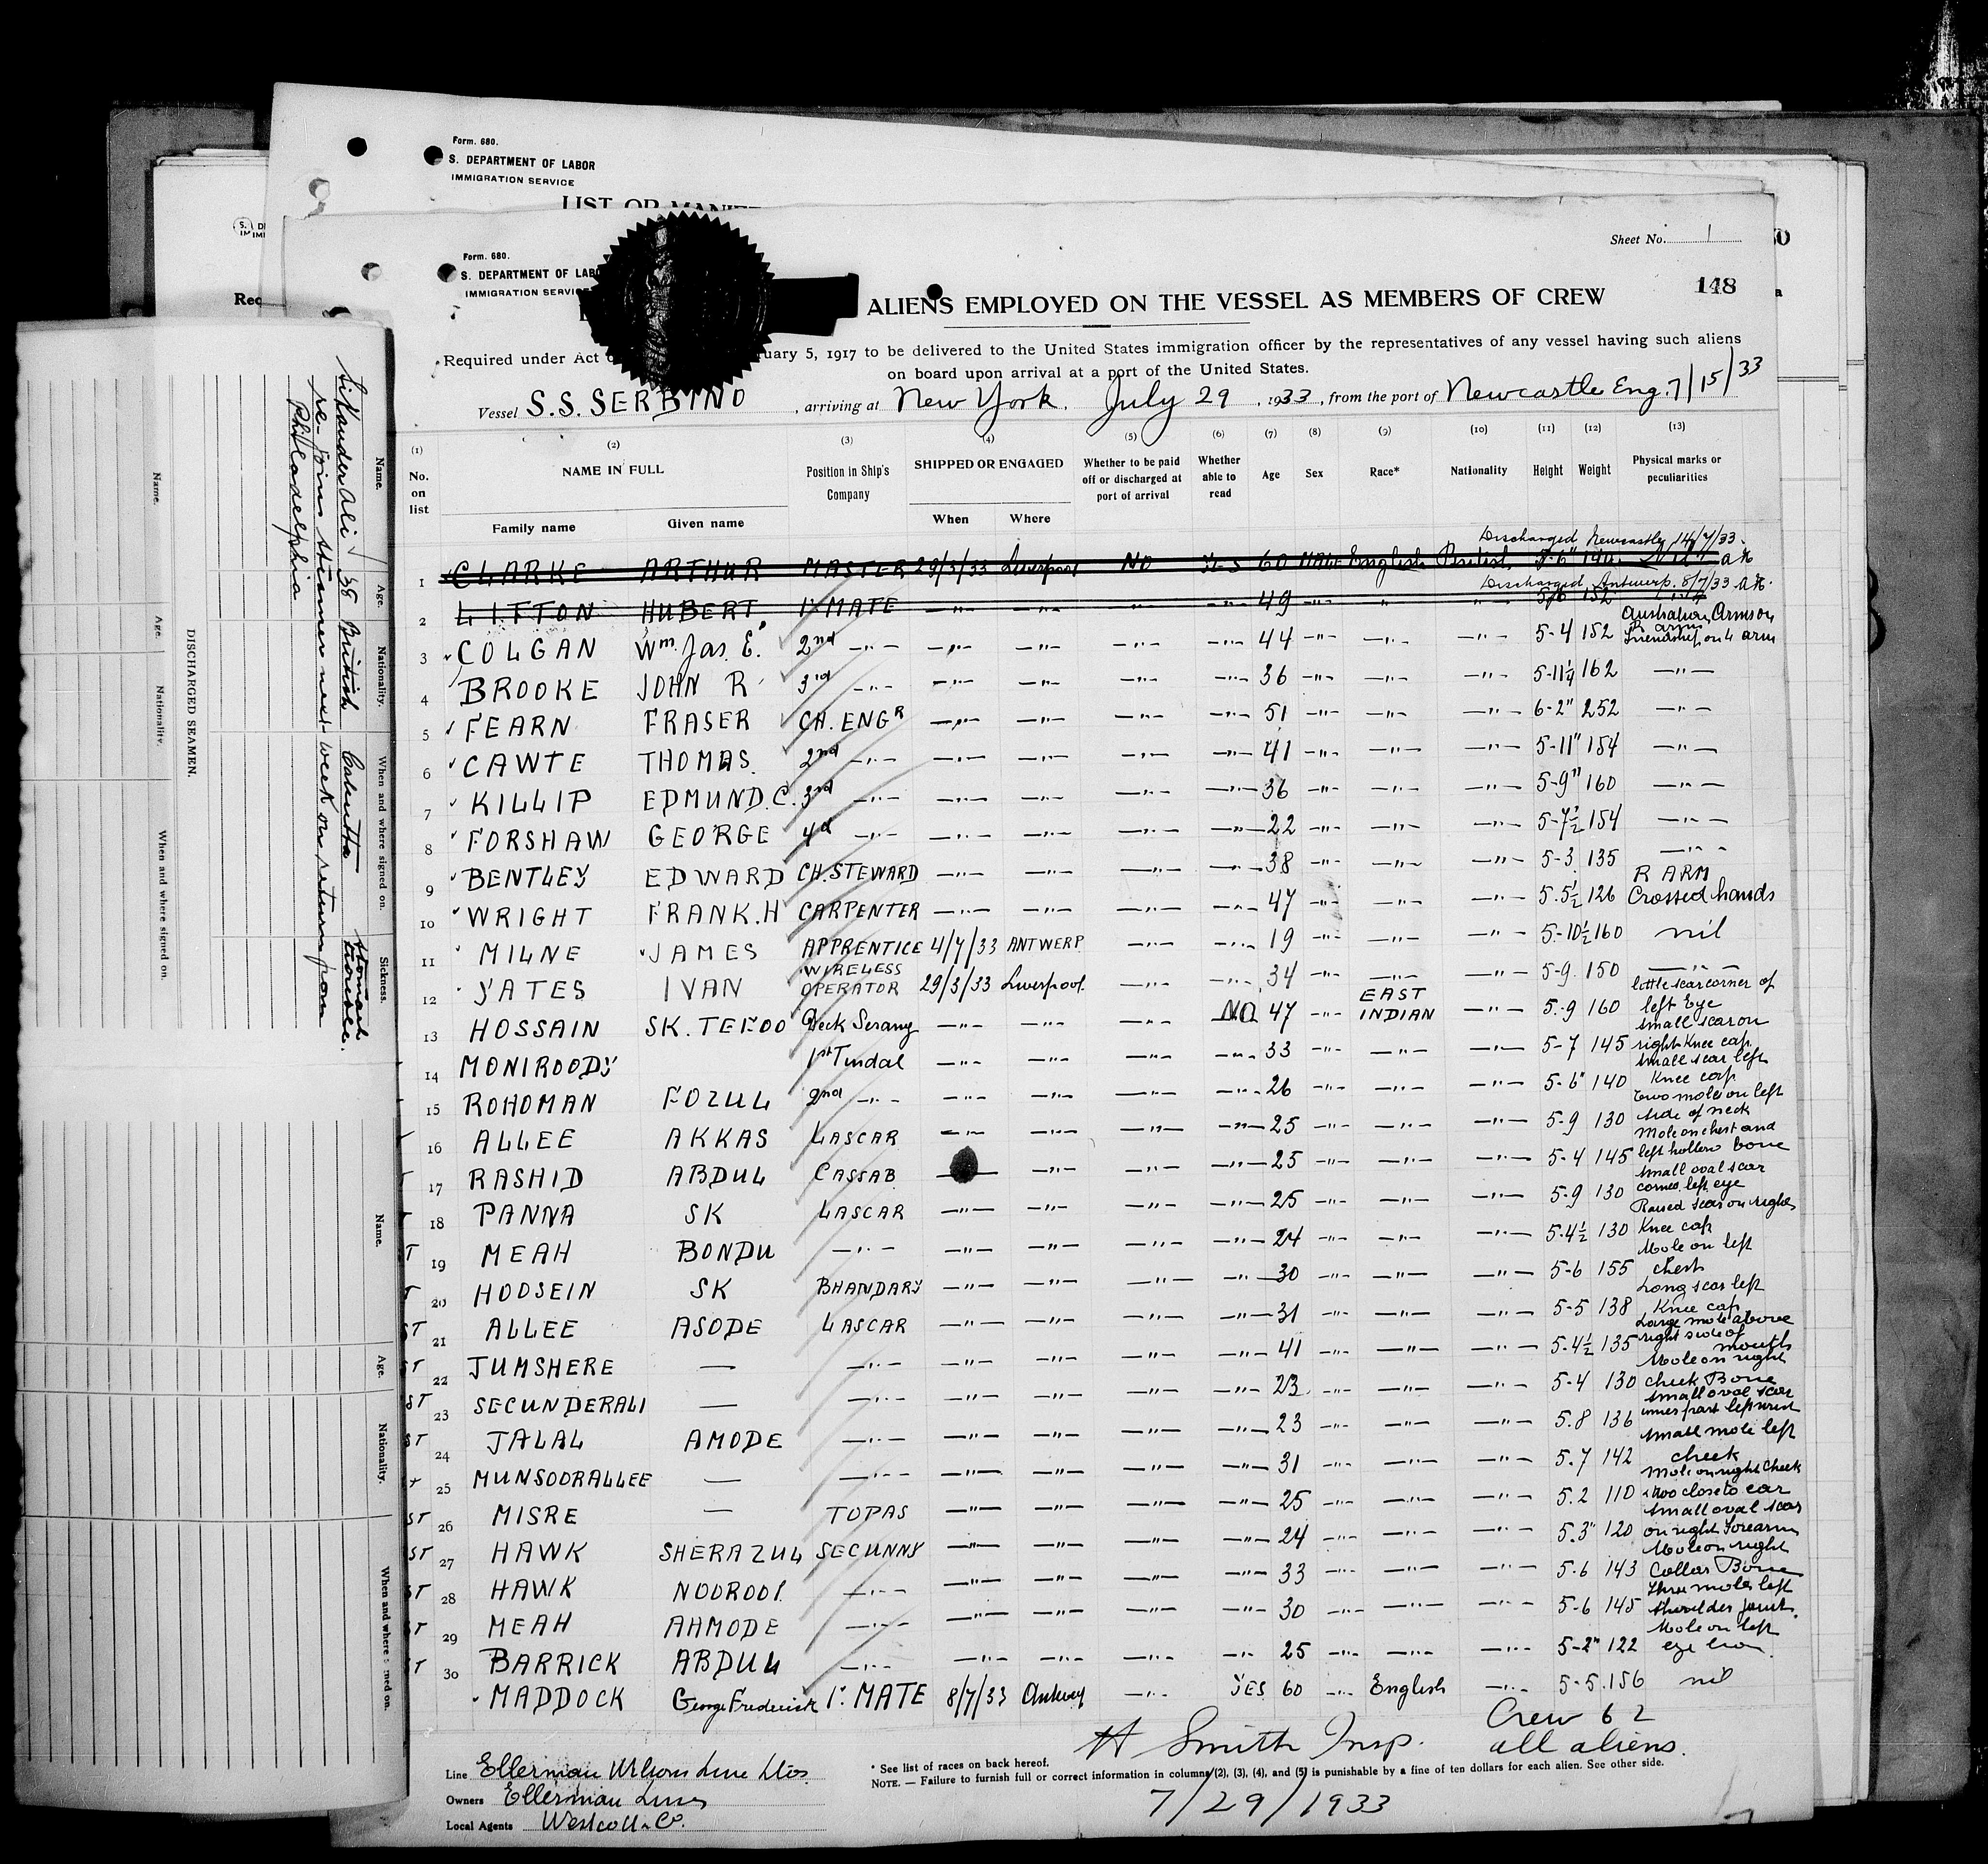 Form. 680.
S. DEPARTMENT OF LABOR
IMMIGRATION SERVICE
LIST OR MANIF
Form. 680.
S. DEPARTMENT OF LABO
IMMIGRATION SERVICE
Sheet No. 1
148
ALIENS EMPLOYED ON THE VESSEL AS MEMBERS OF CREW
Required under Act uary 5, 1917 to be delivered to the United States immigration officer by the representatives of any vessel having such aliens
on board upon arrival at a port of the United States.
Vessel S.S. SERBINO, arriving at New York. July 29, 1933, from the port of Newcastle Eng. 7/15/33
(1) (2) (3) (4) (5) (6) (7) (8) (9) (10) (11) (12) (13)
No. on list NAME IN FULL Family name Given name Position in Ship's Company SHIPPED OR ENGAGED When Where Whether to be paid off or discharged at port of arrival Whether able to read Age Sex Race* Nationality Height Weight Physical marks or peculiarities
Discharged Newcastle 14/7/33.
1 CLARKE ARTHUR MASTER 29/3/33 Liverpool NO YES 60 MALE English British 5-6" 140 Nil
Discharged Antwerp. 8/7/33
2 LIFTON HUBERT 1st MATE —"— —"— " —"— 49 —"— " —"— 5/6 152
3 COLGAN Wm. Jas. E. 2nd —"— —"— —"— —"— —"— 44 —"— —"— —"— 5-4 152 Australian Arms on R arm Friendship on L arm
4 BROOKE JOHN R 3rd —"— —"— —"— —"— —"— 36 —"— —"— —"— 5-11¼ 162 —"—
5 FEARN FRASER CH. ENGR —"— —"— —"— —"— 51 —"— —"— —"— 6-2" 252 —"—
6 CAWTE THOMAS. 2nd —"— —"— —"— —"— —"— 41 —"— —"— —"— 5-11" 184 —"—
7 KILLIP EDMUND. C. 3rd —"— —"— —"— —"— —"— 36 —"— —"— —"— 5-9" 160 —"—
8 FORSHAW GEORGE 4th —"— —"— —"— —"— —"— 22 —"— —"— —"— 5-7½ 154 —"—
9 BENTLEY EDWARD CH. STEWARD —"— —"— —"— —"— 38 —"— —"— —"— 5-3 135 —"—
10 WRIGHT FRANK.H CARPENTER —"— —"— —"— —"— 47 —"— —"— —"— 5.5½ 126 R ARM Crossed hands
11 MILNE JAMES APPRENTICE 4/7/33 ANTWERP —"— —"— 19 —"— —"— —"— 5-10½ 160 nil
12 YATES IVAN WIRELESS OPERATOR 29/3/33 Liverpool. —"— —"— 34 —"— —"— —"— 5-9. 150 —"—
13 HOSSAIN SK. TEFOO Deck Serang —"— —"— —"— NO 47 —"— EAST INDIAN —"— 5-9 160 little scar corner of left Eye
14 MONIROODY 1st Tindal —"— —"— —"— —"— 33 —"— —"— —"— 5-7 145 small scar on right Knee cap.
15 ROHOMAN FOZUL 2nd —"— —"— —"— —"— —"— 26 —"— —"— —"— 5-6" 140 small scar left Knee cap
16 ALLEE AKKAS LASCAR —"— —"— —"— —"— 25 —"— —"— —"— 5-9 130 two moles on left side of neck
17 RASHID ABDUL CASSAB —"— —"— —"— 25 —"— —"— —"— 5-4 145 Mole on chest and left hollow bone
18 PANNA SK LASCAR —"— —"— —"— —"— 25 —"— —"— —"— 5-9 130 small oval scar corner left eye
19 MEAH BONDU —"— —"— —"— —"— —"— 24 —"— —"— —"— 5-4½ 130 Raised scar on right Knee cap
20 HODSEIN SK BHANDARY —"— —"— —"— —"— 30 —"— —"— —"— 5-6 155 Mole on left chest
21 ALLEE ASODE LASCAR —"— —"— —"— —"— 31 —"— —"— —"— 5-5 138 Long scar left Knee cap
22 JUMSHERE — —"— —"— —"— —"— —"— 41 —"— —"— —"— 5-4½ 135 Large mole above right side of mouth
23 SECUNDERALI — —"— —"— —"— —"— —"— 23 —"— —"— —"— 5-4 130 Mole on right cheek Bone
24 JALAL AMODE —"— —"— —"— —"— —"— 23 —"— —"— —"— 5.8 136 small oval scar inner part left wrist
25 MUNSOORALLEE — —"— —"— —"— —"— —"— 31 —"— —"— —"— 5.7 142 small mole left cheek
26 MISRE — TOPAS —"— —"— —"— —"— 25 —"— —"— —"— 5.2 110 Mole on right cheek close to ear
27 HAWK SHERAZUL SECUNNY —"— —"— —"— —"— 24 —"— —"— —"— 5.3" 120 small oval scar on right forearm
28 HAWK NOOROOL —"— —"— —"— —"— —"— 33 —"— —"— —"— 5.6 143 Mole on right Collar Bone
29 MEAH AHMODE —"— —"— —"— —"— —"— 30 —"— —"— —"— 5-6 145 three moles left shoulder joint.
30 BARRICK ABDUL —"— —"— —"— —"— —"— 25 —"— —"— —"— 5-2" 122 Mole on left eye brow
MADDOCK George Frederick 1st MATE 8/7/33 Antwerp —"— YES 60 —"— English —"— 5-5. 156 nil
H Smith Insp.
Crew 62
all aliens.
7/29/1933
* See list of races on back hereof.
NOTE. — Failure to furnish full or correct information in columns (2), (3), (4), and (5) is punishable by a fine of ten dollars for each alien. See other side.
Line Ellerman Wilson Line
Owners Ellerman Lines
Local Agents Westcott & Co.
Name. Age. Nationality. When and where signed on. Sickness.
Sikander Ali 38 British Calcutta stomach trouble.
re-joins steamer next week on return from
Philadelphia
DISCHARGED SEAMEN.
Name. Age. Nationality. When and where signed on.
Name. Age. Nationality. When and where signed on.
Rec